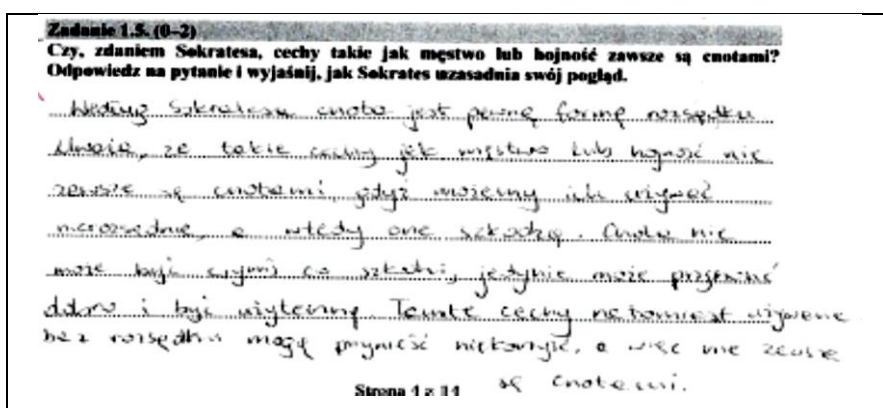 Zadanie 1.5. (0–2)
Czy, zdaniem Sokratesa, cechy takie jak męstwo lub hojność zawsze są cnotami?
Odpowiedz na pytanie i wyjaśnij, jak Sokrates uzasadnia swój pogląd.
Według Sokratesa cnota jest pewną formą rozsądku
Uważa, że takie cechy jak męstwo lub hojność nie
zawsze są cnotami, gdyż możemy ich używać
nierozsądnie, a wtedy one szkodzą. Cnota nie
może być czymś co szkodzi, jedynie może przynieść
dobro i być użyteczną. Tamte cechy natomiast używane
bez rozsądku mogą przynieść niekorzyść, a więc nie zawsze
Strona 4 z 14
są cnotami.